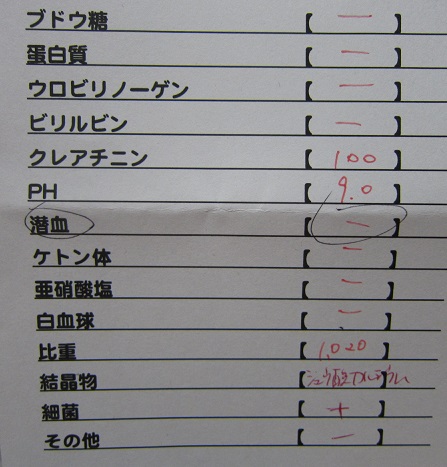 ブドウ糖 【 － 】
蛋白質 【 － 】
ウロビリノーゲン 【 － 】
ビリルビン 【 － 】
クレアチニン 【 100 】
PH 【 9.0 】
潜血 【 － 】
ケトン体 【 － 】
亜硝酸塩 【 － 】
白血球 【 － 】
比重 【 1,020 】
結晶物 【シュウ酸カルシウム】
細菌 【 + 】
その他 【 － 】